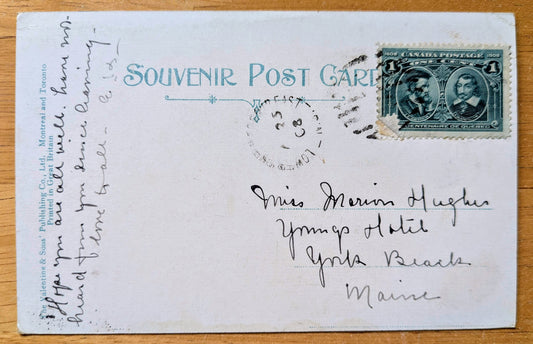 SOUVENIR POST CARD
1608 CANADA POSTAGE 1908
1 ONE CENT 1
CENTENAIRE DE QUEBEC
25
08
Miss Marion Hughes
Youngs Hotel
York Beach
Maine
The Valentine & Sons' Publishing Co., Ltd., Montreal and Toronto
Printed in Great Britain
Hope you are all well. have not
heard from you since leaving -
love to all -